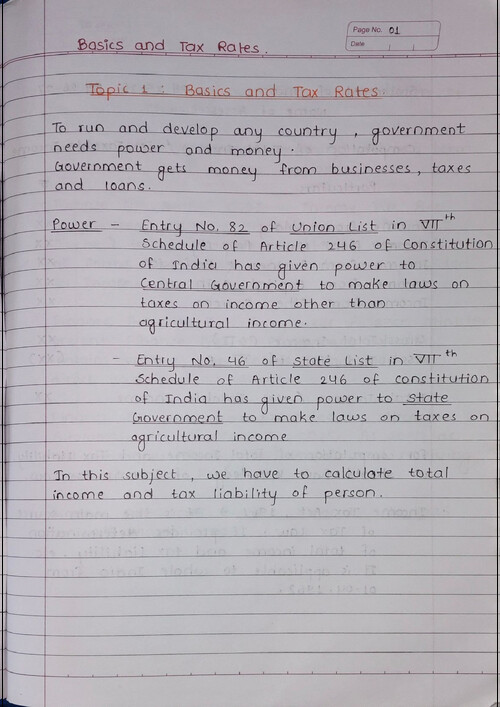 Page No. 01
Date
Basics and Tax Rates.
Topic 1 : Basics and Tax Rates
To run and develop any country, government
needs power and money.
Government gets money from businesses, taxes
and loans.
Power - Entry No. 82 of Union List in VIIth
Schedule of Article 246 of Constitution
of India has given power to
Central Government to make laws on
taxes on income other than
agricultural income.
- Entry No. 46 of State List in VIIth
Schedule of Article 246 of constitution
of India has given power to State
Government to make laws on taxes on
agricultural income
In this subject, we have to calculate total
income and tax liability of person.